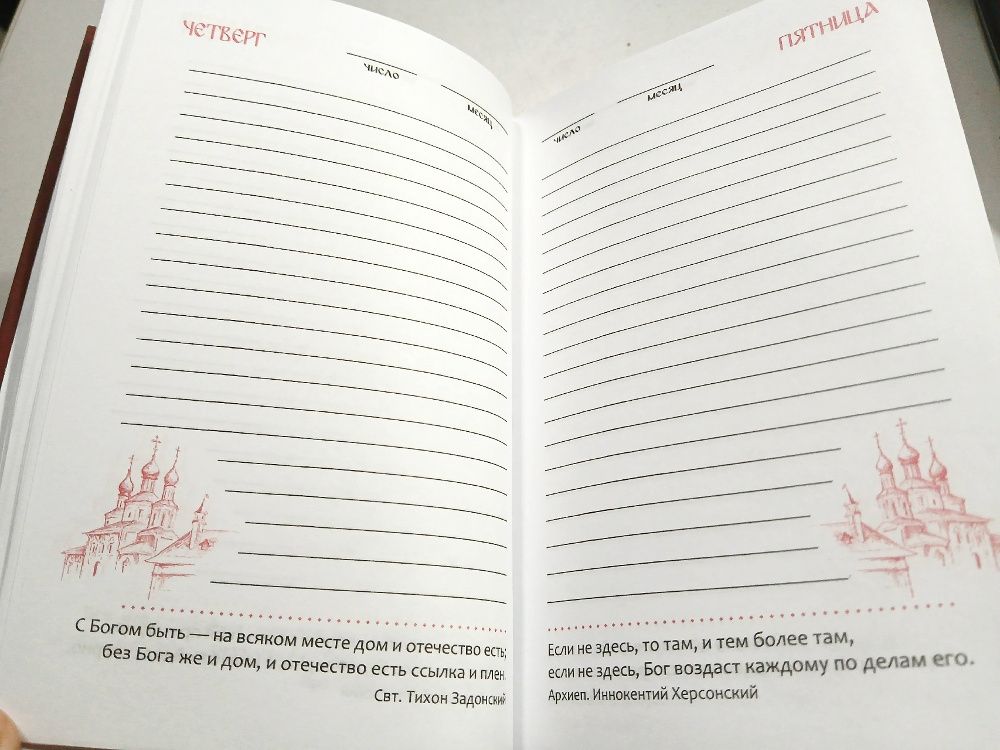 ЧЕТВЕРГ
число
месяц
С Богом быть — на всяком месте дом и отечество есть;
без Бога же и дом, и отечество есть ссылка и плен.
Свт. Тихон Задонский
ПЯТНИЦА
число
месяц
Если не здесь, то там, и тем более там,
если не здесь, Бог воздаст каждому по делам его.
Архиеп. Иннокентий Херсонский